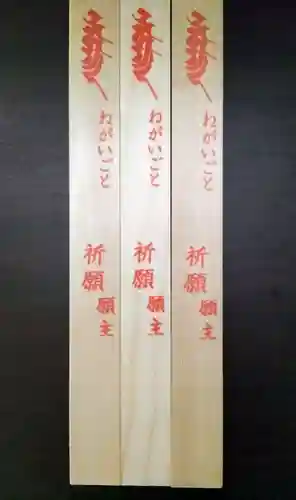 ねがいごと
祈願
願主
ねがいごと
祈願
願主
ねがいごと
祈願
願主